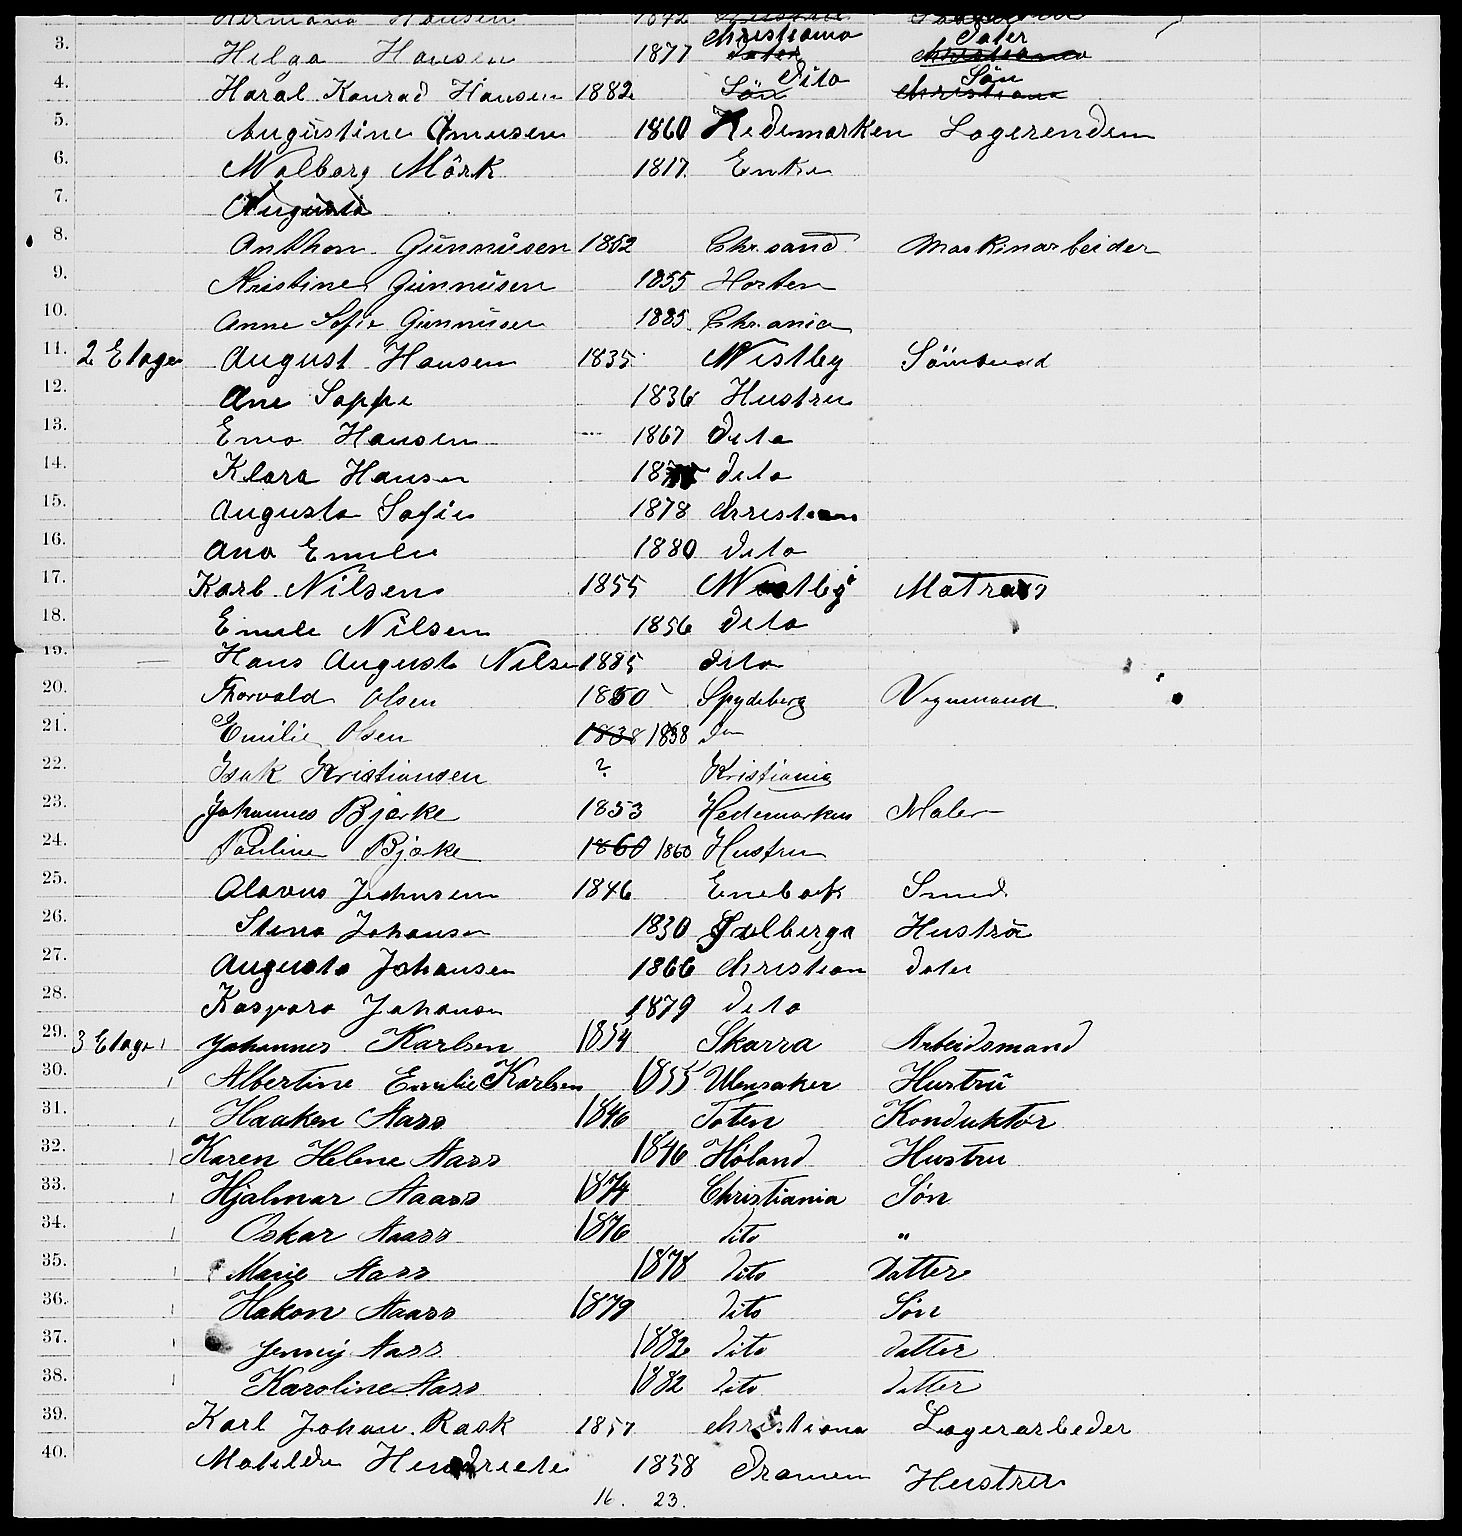 Hermana Hansen 1842 Hustru
3. Helga Hansen 1877 Christiania Dater
4. Haral Konrad Hansen 1882 Dito Sön
5. Augustine 1860 Hedemarken Logerenden
6. Walborg Mörk 1817 Enke
7. Augusta
8. Anthon Gunnüsen 1852 Chr.sand Maskinarbeider
9. Kristine Gunnüsen 1855 Horten
10. Anne Sofie Gunnüsen 1885 Chr.ania
11. 2 Etage August Hansen 1835 Westby
12. Ane Soppi 1836 Hustru
13. Ema Hansen 1867 Dito
14. Klara Hansen Dito
15. Augusta Sofie 1878 Christian
16. Ana Emilie 1880 Dito
17. Karl Nilsen 1855 Westby Matros
18. Emile Nilsen 1856 Dito
19. Hans August Nilsen 1885 Dito
20. Thorvald Olsen 1850 Spydeberg Vognmand
21. Emilie Olsen 1838 1858 Do
22. Isak Kristiansen ? Kristiania
23. Johannes Bjerke 1853 Hedemarken Maler
24. Pauline Bjeke 1860 1860 Hustru
25. Olavus Johnsen 1846 Enebak Smed
26. Stina Johansen 1830 Hustrü
27. Augusta Johansen 1866 Christian Dater
28. Kaspara Johansen 1879 Dito
29. 3 Etage Johannes Karlsen 1854 Skarra Arbeidsmand
30. Albertine Emilie Karlsen 1855 Ulensaker Hustrü
31. Haaken Aass 1846 Toten Konduktør
32. Karen Helene Aass 1846 Høland Hustru
33. Hjalmar Aaass 1874 Christiania Søn
34. Oskar Aaass 1876 Dito "
35. Marie Aass 1878 Dito Datter
36. Hakon Aaass 1879 Dito Søn
37. Jenny Aass 1882 Dito Datter
38. Karoline Aass 1882 Dito Datter
39. Karl Johan Rask 1857 Christiana Lagerarbeder
40. Matilde Hendriete 1858 Dramen Hustru
16. 23.